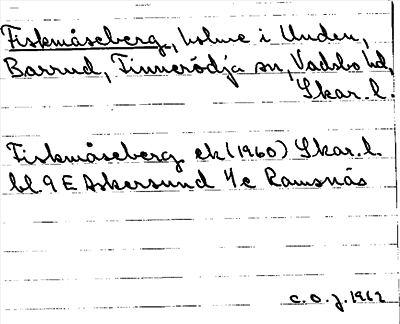 Fiskmåseberg, holme i Unden,
Barrud, Tinnerödja sn, Vadsbo hd,
Skar. l.
Fiskmåseberg ek (1960) Skar. l.
bl. 9 E Askersund 4/c Ramsnäs
c. o. j. 1962